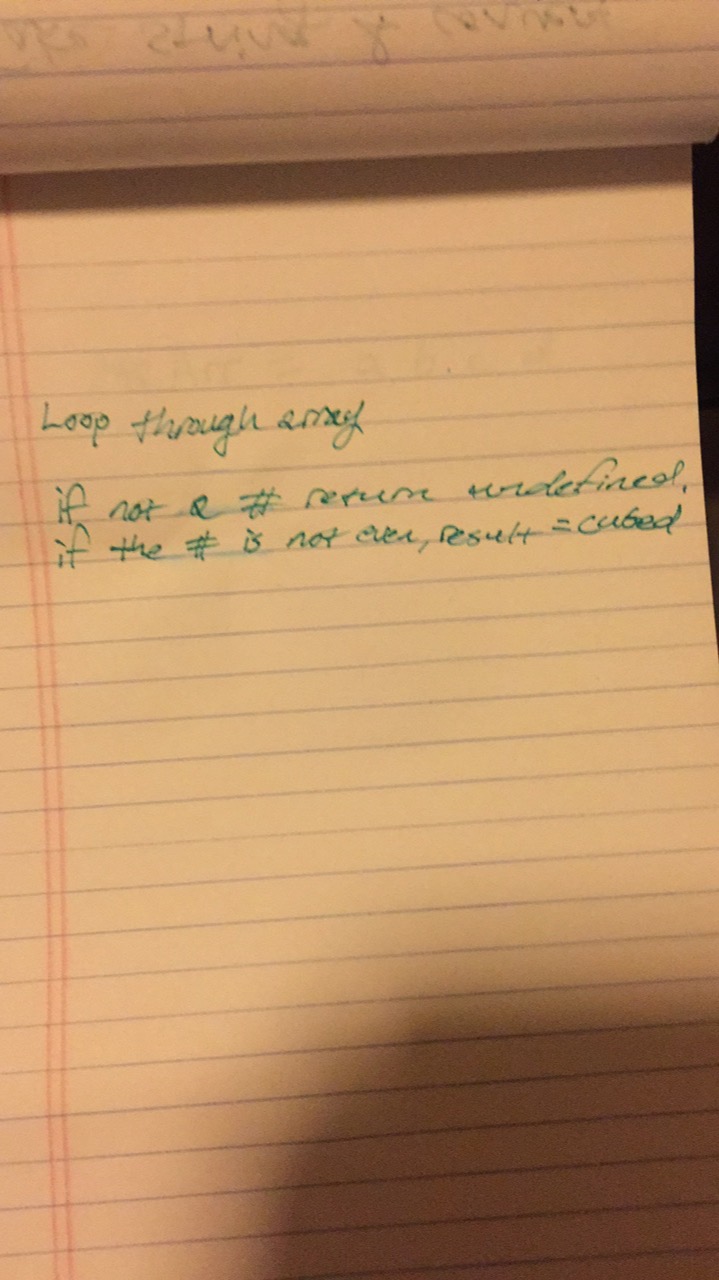 Loop through array
if not a # return undefined.
if the # is not even, result = cubed